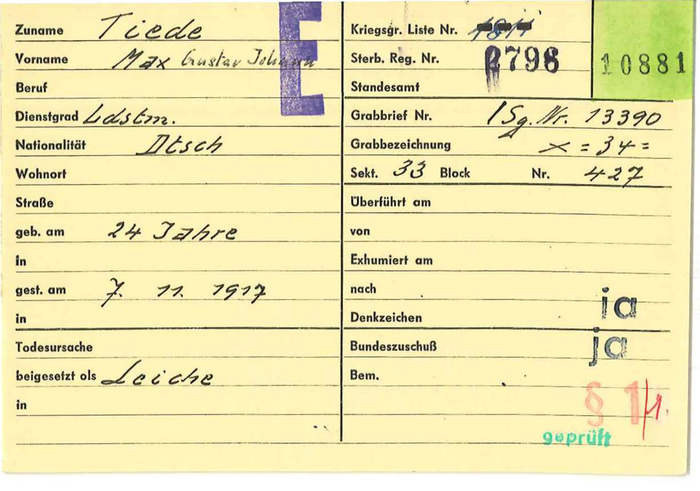 Zuname Tiede
Vorname Max Gustav Johann
Beruf
Dienstgrad Ldstm.
Nationalität Dtsch
Wohnort
Straße
geb. am 24 Jahre
in
gest. am 7. 11. 1917
in
Todesursache
beigesetzt als Leiche
in
E
Kriegsgr. Liste Nr. 1811
Sterb. Reg. Nr. 2798
Standesamt
10881
Grabbrief Nr. / Sg. Nr. 13390
Grabbezeichnung x = 34 =
Sekt. 33 Block Nr. 427
Überführt am
von
Exhumiert am
nach
Denkzeichen ja
Bundeszuschuß ja
Bem.
§ 1/1.
geprüft